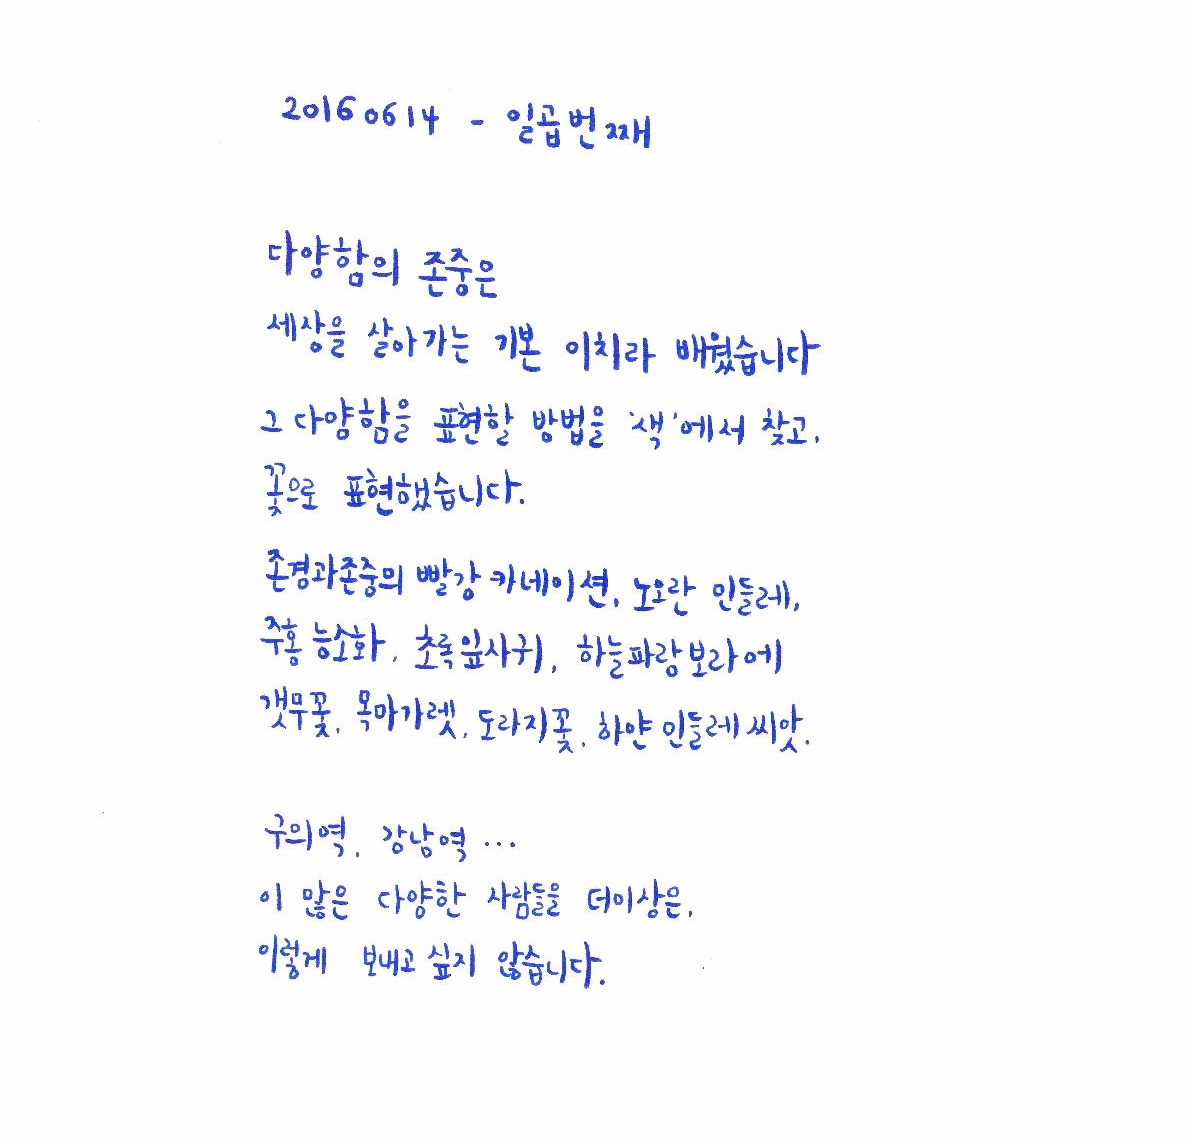 20160614 - 일곱번째
다양함의 존중은
세상을 살아가는 기본 이치라 배웠습니다
그 다양함을 표현할 방법을 '색'에서 찾고,
꽃으로 표현했습니다.
존경과존중의 빨강 카네이션, 노오란 민들레,
주홍 능소화, 초록잎사귀, 하늘파랑보라에
갯무꽃, 목마가렛, 도라지꽃, 하얀 민들레 씨앗.
구의역, 강남역 ...
이 많은 다양한 사람들을 더이상은,
이렇게 보내고 싶지 않습니다.